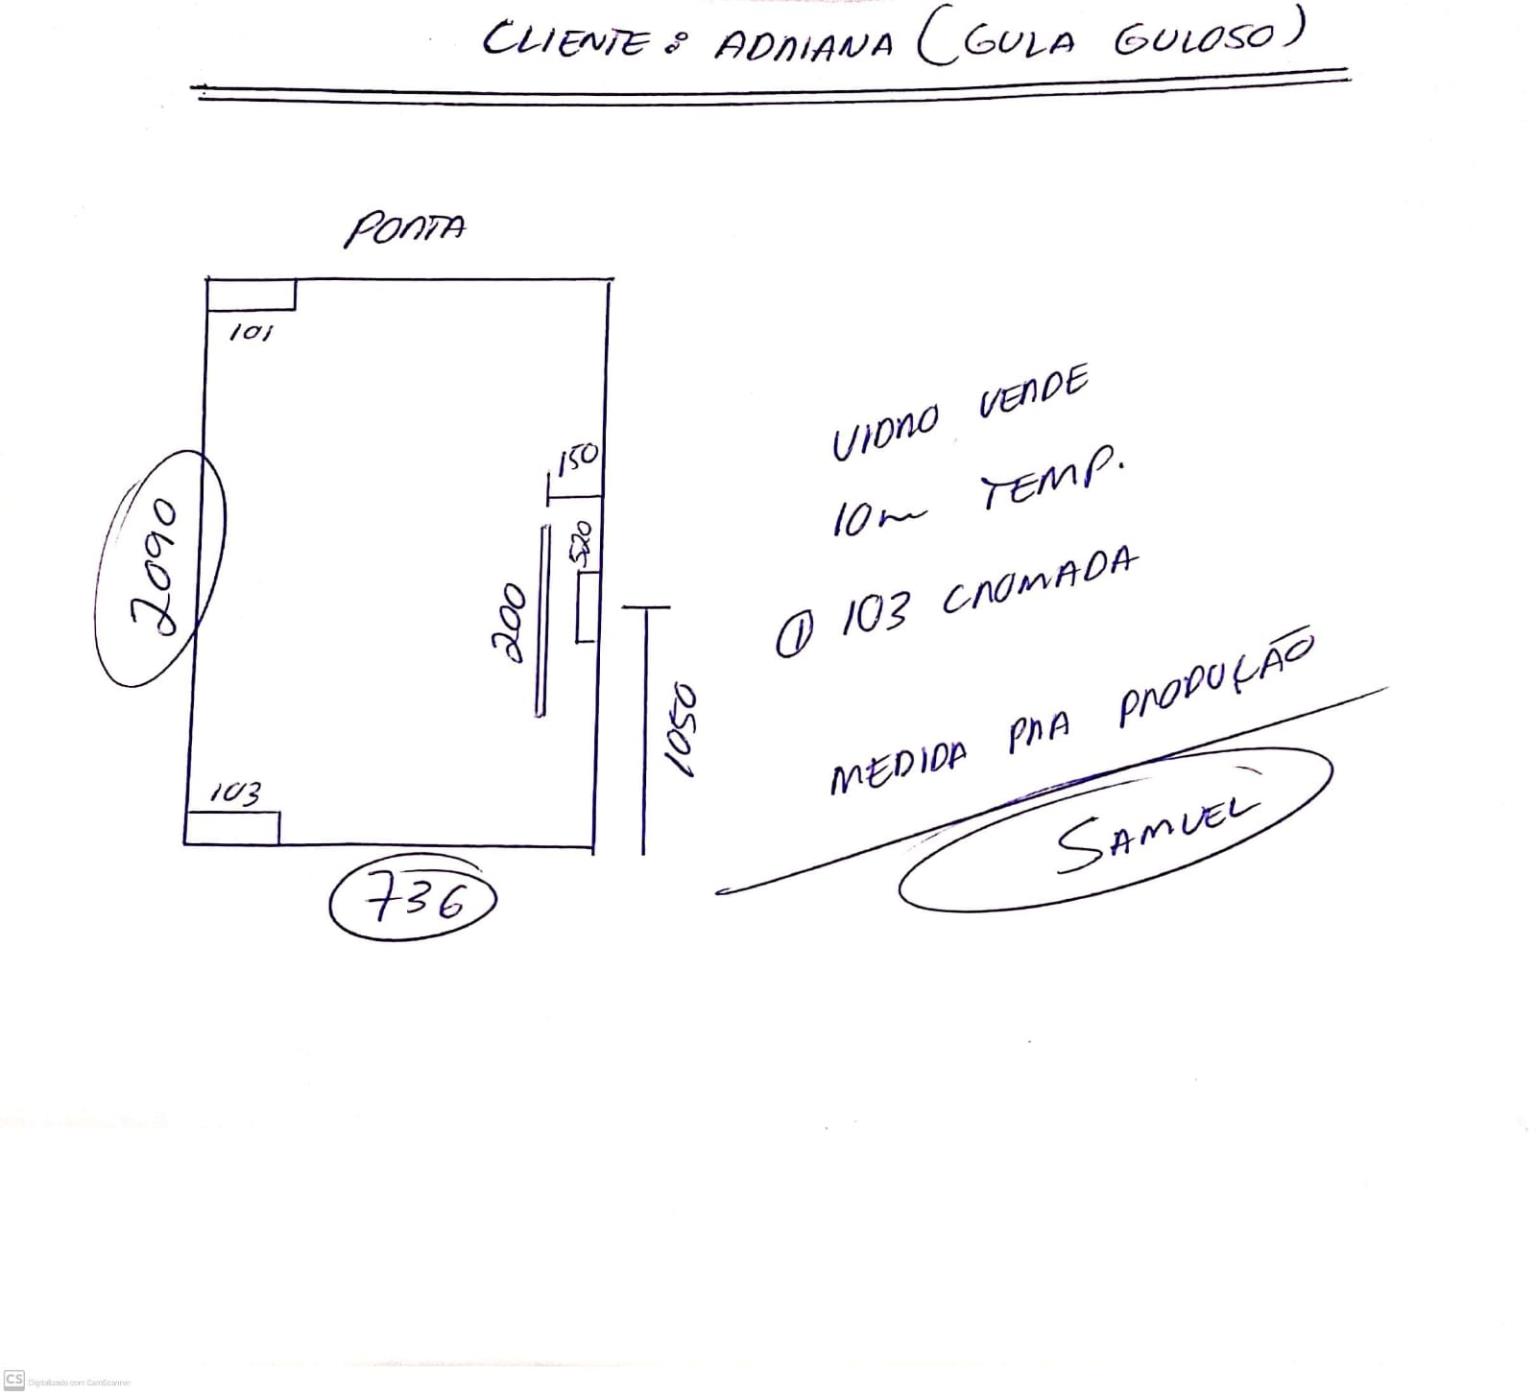 CLIENTE: ADRIANA (GULA GULOSO)
PORTA
101
150
520
200
2090
1050
103
736
VIDRO VERDE
10m TEMP.
① 103 CROMADA
MEDIDA PRA PRODUÇÃO
SAMUEL
CS Digitalizado com CamScanner